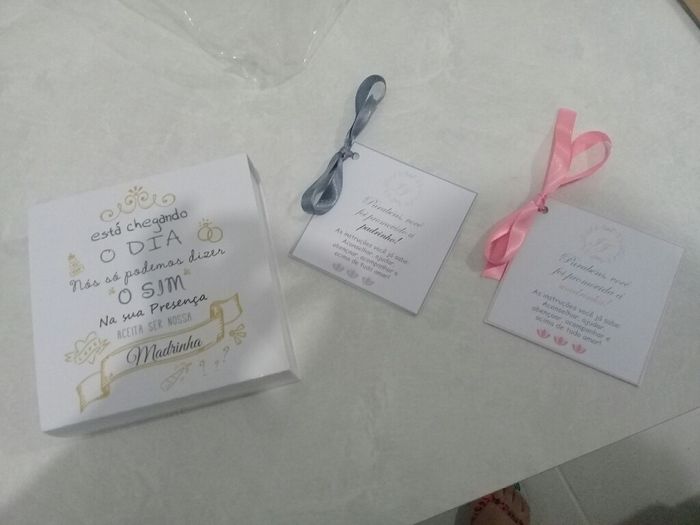 está chegando
O DIA
Nós só podemos dizer
O SIM
Na sua Presença
ACEITA SER NOSSA
Madrinha
? ? ? ?
Parabéns, você
foi promovido a
padrinho!
As instruções você já sabe:
Aconselhar, ajudar,
abençoar, acompanhar e
acima de tudo amar!
Parabéns, você
foi promovida a
madrinha!
As instruções você já sabe:
Aconselhar, ajudar,
abençoar, acompanhar e
acima de tudo amar!